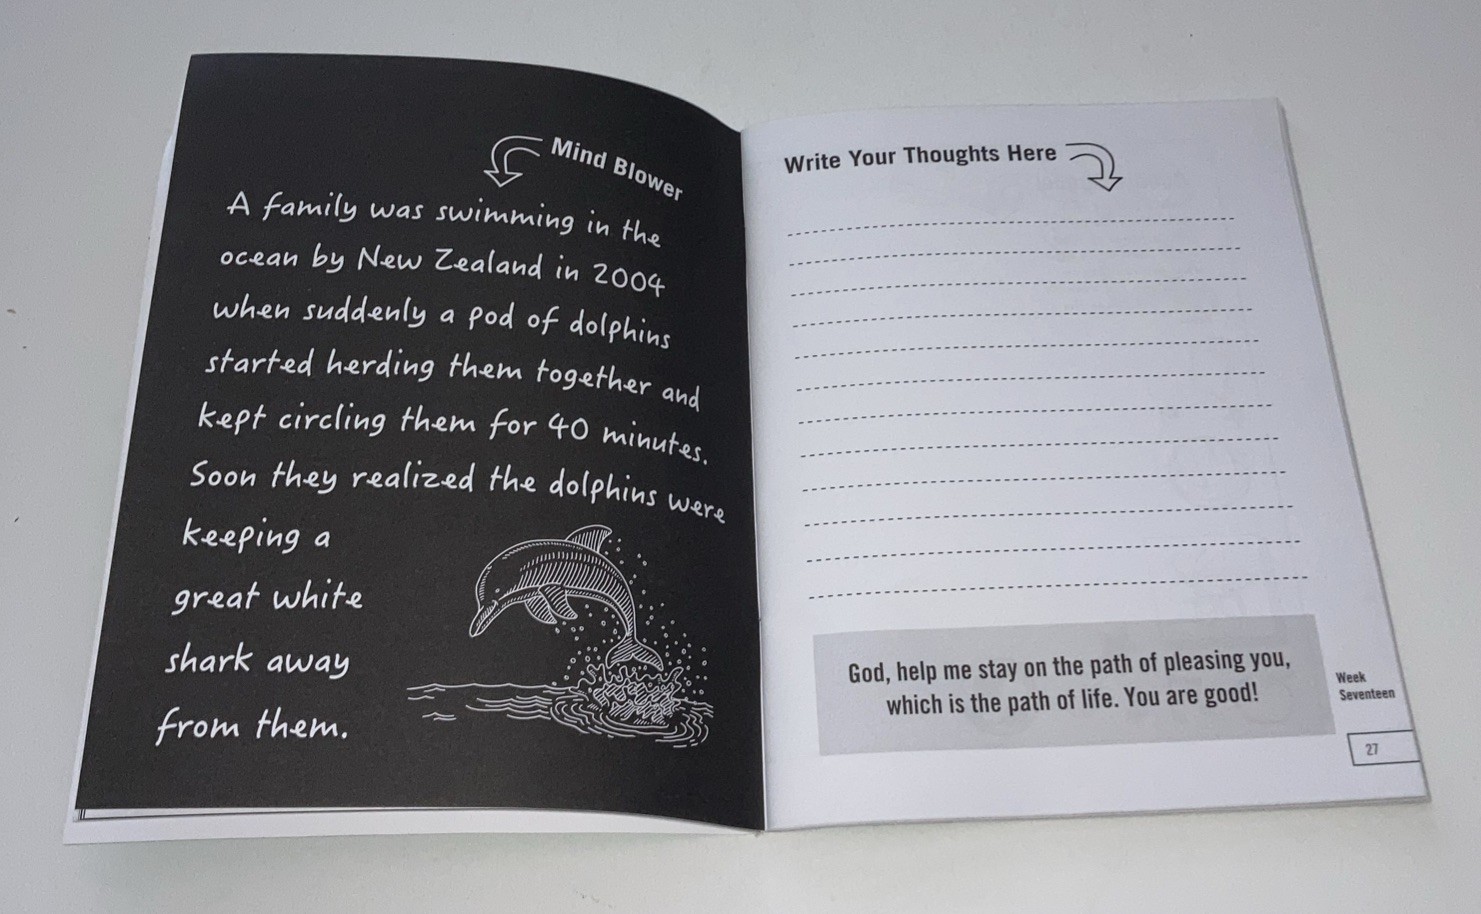 Mind Blower
A family was swimming in the
ocean by New Zealand in 2004
when suddenly a pod of dolphins
started herding them together and
kept circling them for 40 minutes.
Soon they realized the dolphins were
keeping a
great white
shark away
from them.
Write Your Thoughts Here
God, help me stay on the path of pleasing you,
which is the path of life. You are good!
Week
Seventeen
27